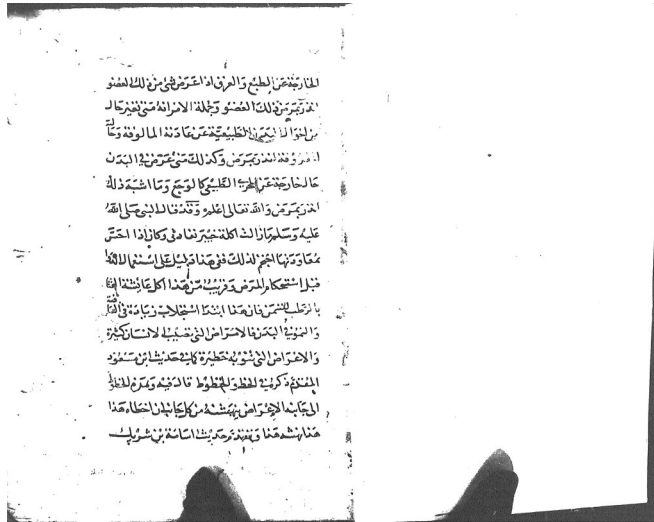 الخارجة عن الطبع والعرق اذا عرض شئ من ذلك لعضو
انذر بمرض ذلك العضو وجملة الامر انه متى تغير حال
من احوال البدن الطبيعية عن عادته المالوفة
المعروفة انذر بمرض وكذلك متى عرض في البدن
حال خارجة عن المجرى الطبيعي كالوجع وما اشبه ذلك
انذر بمرض والله تعالى اعلم وقد قال النبي صلى الله
عليه وسلم ما زالت اكلة خيبر تعادني وكان اذا احس
بمعاودتها احتجم لذلك ففي هذا دليل على استعمال
قبل استحكام المرض وقريب من هذا اكل عائشة
بالرطب للسمن فان هذا ابتدا استجلاب زيادة في
والنمو في البدن فالامراض التي تصيب الانسان كثيرة
والاعراض التي تنوبه خطيرة كما في حديث ابن مسعود
المتقدم ذكره في الخط والخطوط قال فيه وعدة خطوط
الى جانبه الاعراض تنهشه من كل جانب ان اخطاه هذا
هذا نهشه هذا وحديث اسامة بن شريك